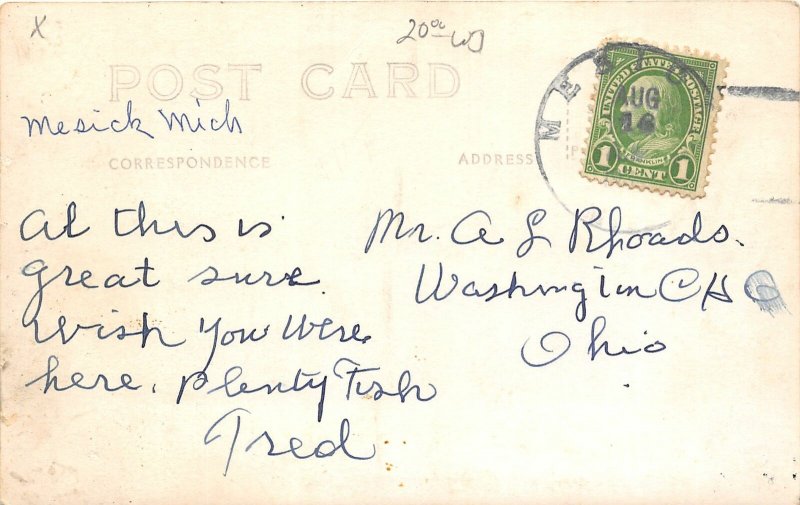 X
20⁰⁰
POST CARD
Mesick Mich
CORRESPONDENCE
ADDRESS
MES
AUG
16
UNITED STATES POSTAGE
FRANKLIN
1 CENT 1
Al this is
great sure
wish you were
here. Plenty Fish
Fred
Mr. A L Rhoads.
Washington CH O
Ohio